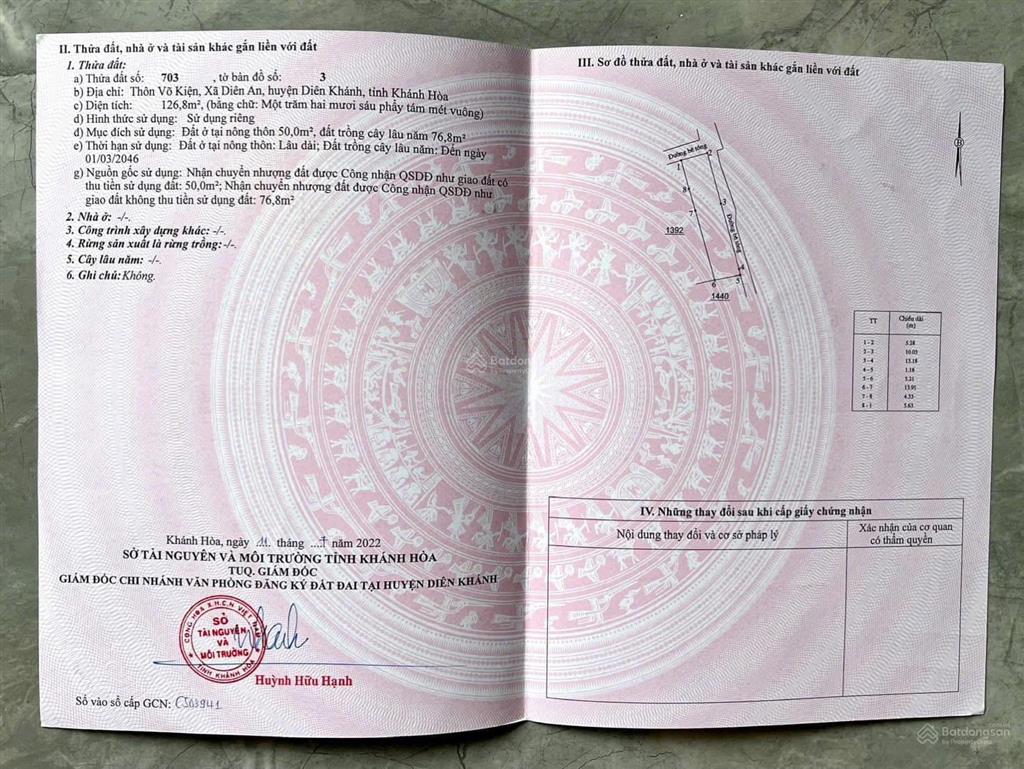 II. Thửa đất, nhà ở và tài sản khác gắn liền với đất
1. Thửa đất:
a) Thửa đất số: 703 , tờ bản đồ số: 3
b) Địa chỉ: Thôn Võ Kiện, Xã Diên An, huyện Diên Khánh, tỉnh Khánh Hòa
c) Diện tích: 126,8m², (bằng chữ: Một trăm hai mươi sáu phẩy tám mét vuông)
d) Hình thức sử dụng: Sử dụng riêng
đ) Mục đích sử dụng: Đất ở tại nông thôn 50,0m², đất trồng cây lâu năm 76,8m²
e) Thời hạn sử dụng: Đất ở tại nông thôn: Lâu dài; Đất trồng cây lâu năm: Đến ngày
01/03/2046
g) Nguồn gốc sử dụng: Nhận chuyển nhượng đất được Công nhận QSDĐ như giao đất có
thu tiền sử dụng đất: 50,0m²; Nhận chuyển nhượng đất được Công nhận QSDĐ như
giao đất không thu tiền sử dụng đất: 76,8m²
2. Nhà ở: -/-.
3. Công trình xây dựng khác: -/-.
4. Rừng sản xuất là rừng trồng:-/-.
5. Cây lâu năm: -/-.
6. Ghi chú: Không.
Khánh Hòa, ngày 11 tháng năm 2022
SỞ TÀI NGUYÊN VÀ MÔI TRƯỜNG TỈNH KHÁNH HÒA
TUQ. GIÁM ĐỐC
GIÁM ĐỐC CHI NHÁNH VĂN PHÒNG ĐĂNG KÝ ĐẤT ĐAI TẠI HUYỆN DIÊN KHÁNH
CỘNG HÒA X.H.C.N VIỆT NAM
SỞ
TÀI NGUYÊN
VÀ
MÔI TRƯỜNG
TỈNH KHÁNH HÒA
Huỳnh Hữu Hạnh
Số vào sổ cấp GCN: CS03941
III. Sơ đồ thửa đất, nhà ở và tài sản khác gắn liền với đất
B
Đường bê tông
2
1
8
3
7
1392
Đường bê tông
4
5
6
1440
TT Chiều dài (m)
1 - 2 5.28
2 - 3 10.03
3 - 4 13.18
4 - 5 1.18
5 - 6 5.21
6 - 7 13.95
7 - 8 4.33
8 - 1 5.63
IV. Những thay đổi sau khi cấp giấy chứng nhận
Nội dung thay đổi và cơ sở pháp lý
Xác nhận của cơ quan
có thẩm quyền
Batdongsan
by PropertyGuru
Batdongsan
by PropertyGuru